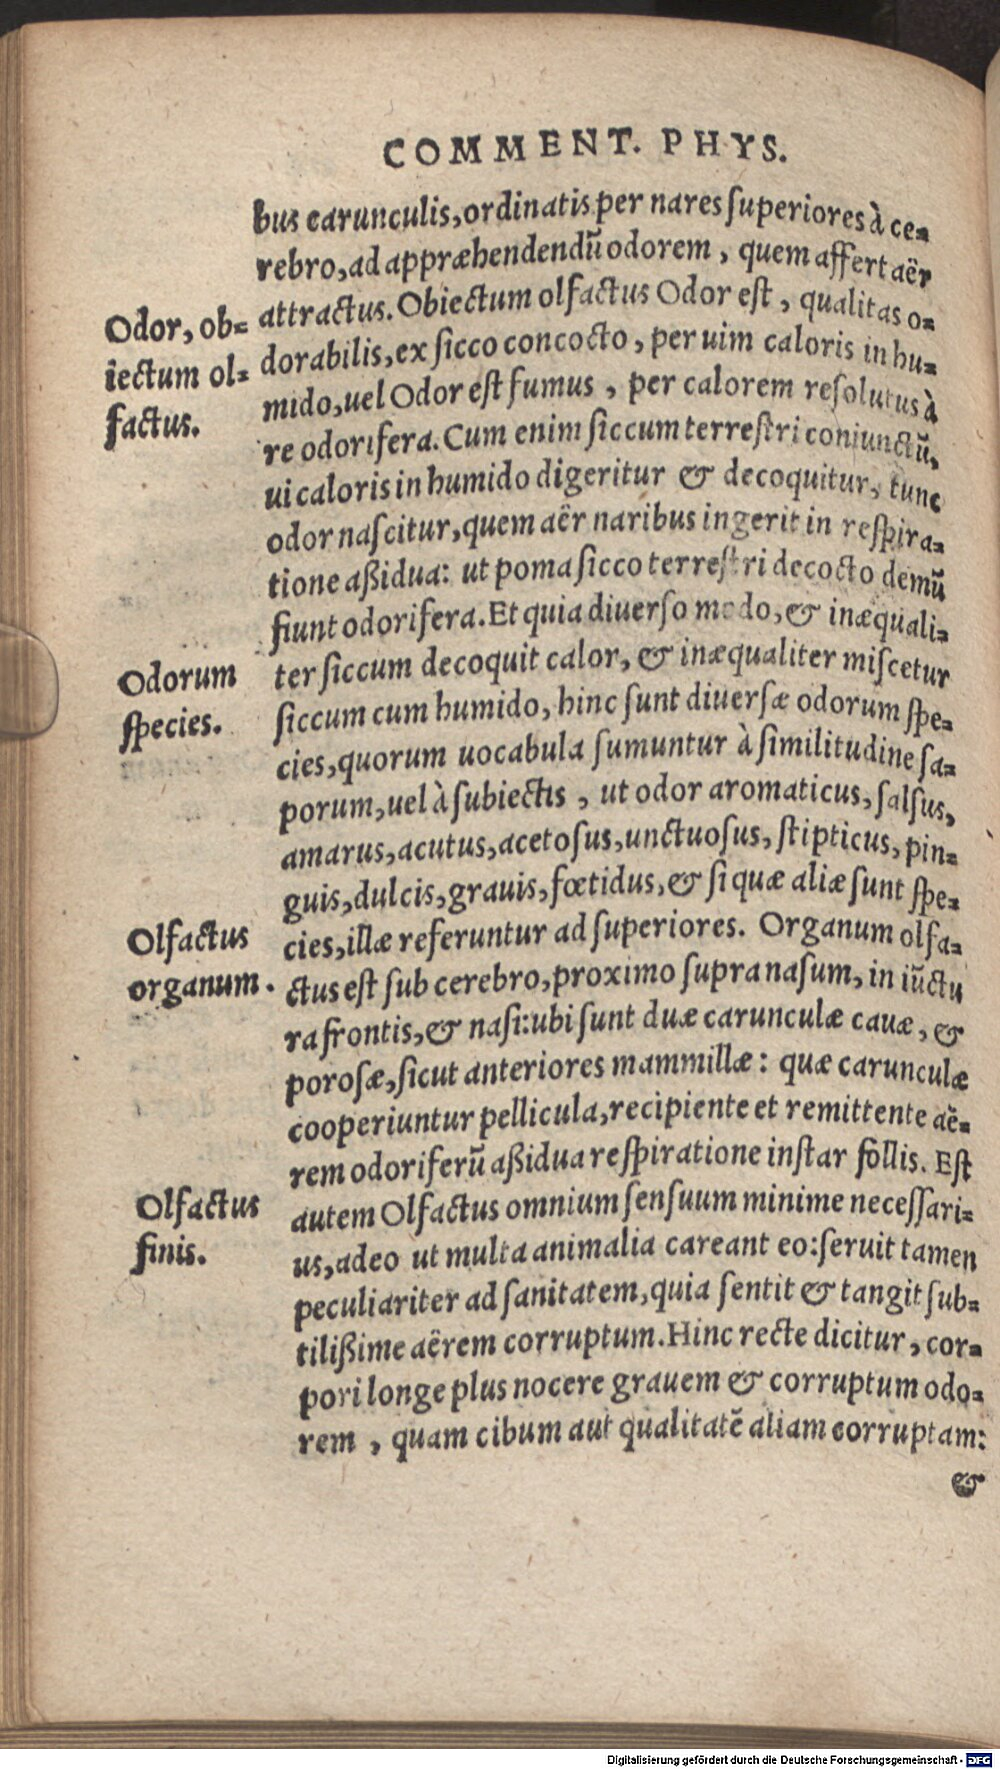 COMMENT. PHYS.
bus carunculis, ordinatis per nares ſuperiores à ce=
rebro, ad appræhendendū odorem, quem affert aër
attractus. Obiectum olfactus Odor eſt, qualitas o=
dorabilis, ex ſicco concocto, per uim caloris in hu=
mido, uel Odor eſt fumus, per calorem reſolutus à
re odorifera. Cum enim ſiccum terreſtri coniunctū,
ui caloris in humido digeritur & decoquitur, tunc
odor naſcitur, quem aër naribus ingerit in reſpira=
tione aßidua: ut poma ſicco terreſtri decocto demū
fiunt odorifera. Et quia diuerſo modo, & inæquali=
ter ſiccum decoquit calor, & inæqualiter miſcetur
ſiccum cum humido, hinc ſunt diuerſæ odorum ſpe=
cies, quorum uocabula ſumuntur à ſimilitudine ſa=
porum, uel à ſubiectis, ut odor aromaticus, ſalſus,
amarus, acutus, acetoſus, unctuoſus, ſtipticus, pin=
guis, dulcis, grauis, fœtidus, & ſi quæ aliæ ſunt ſpe=
cies, illæ referuntur ad ſuperiores. Organum olfa=
ctus eſt ſub cerebro, proximo ſupra naſum, in iūctu
ra frontis, & naſi: ubi ſunt duæ carunculæ cauæ, &
poroſæ, ſicut anteriores mammillæ: quæ carunculæ
cooperiuntur pellicula, recipiente et remittente aë=
rem odoriferū aßidua reſpiratione inſtar follis. Eſt
autem Olfactus omnium ſenſuum minime neceſſari=
us, adeo ut multa animalia careant eo: ſeruit tamen
peculiariter ad ſanitatem, quia ſentit & tangit ſub=
tilißime aërem corruptum. Hinc recte dicitur, cor=
pori longe plus nocere grauem & corruptum odo=
rem, quam cibum aut qualitatē aliam corruptam:
&
Odor, ob=
iectum ol=
factus.
Odorum
ſpecies.
Olfactus
organum.
Olfactus
finis.
Digitalisierung gefördert durch die Deutsche Forschungsgemeinschaft - DFG